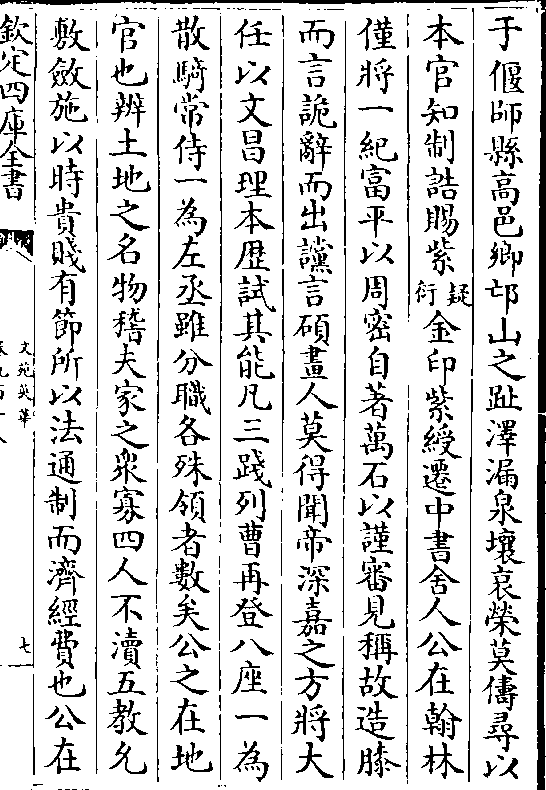 于偃師縣高邑鄉邙山之趾澤漏泉壤哀榮莫儔尋以
本官知制誥賜紫疑衍金印紫綬遷中書舍人公在翰林
僅將一紀富平以周密自著萬石以謹審見稱故造膝
而言詭辭而出讜言碩畫人莫得聞帝深嘉之方將大
任以文昌理本歷試其能凡三踐列曹再登八座一為
散騎常侍一為左丞雖分職各殊領者數矣公之在地
官也辨土地之名物稽夫家之衆寡四人不瀆五教允
敷斂施以時貴賤有節所以法通制而濟經費也公在
欽定四庫全書
文苑英華
七